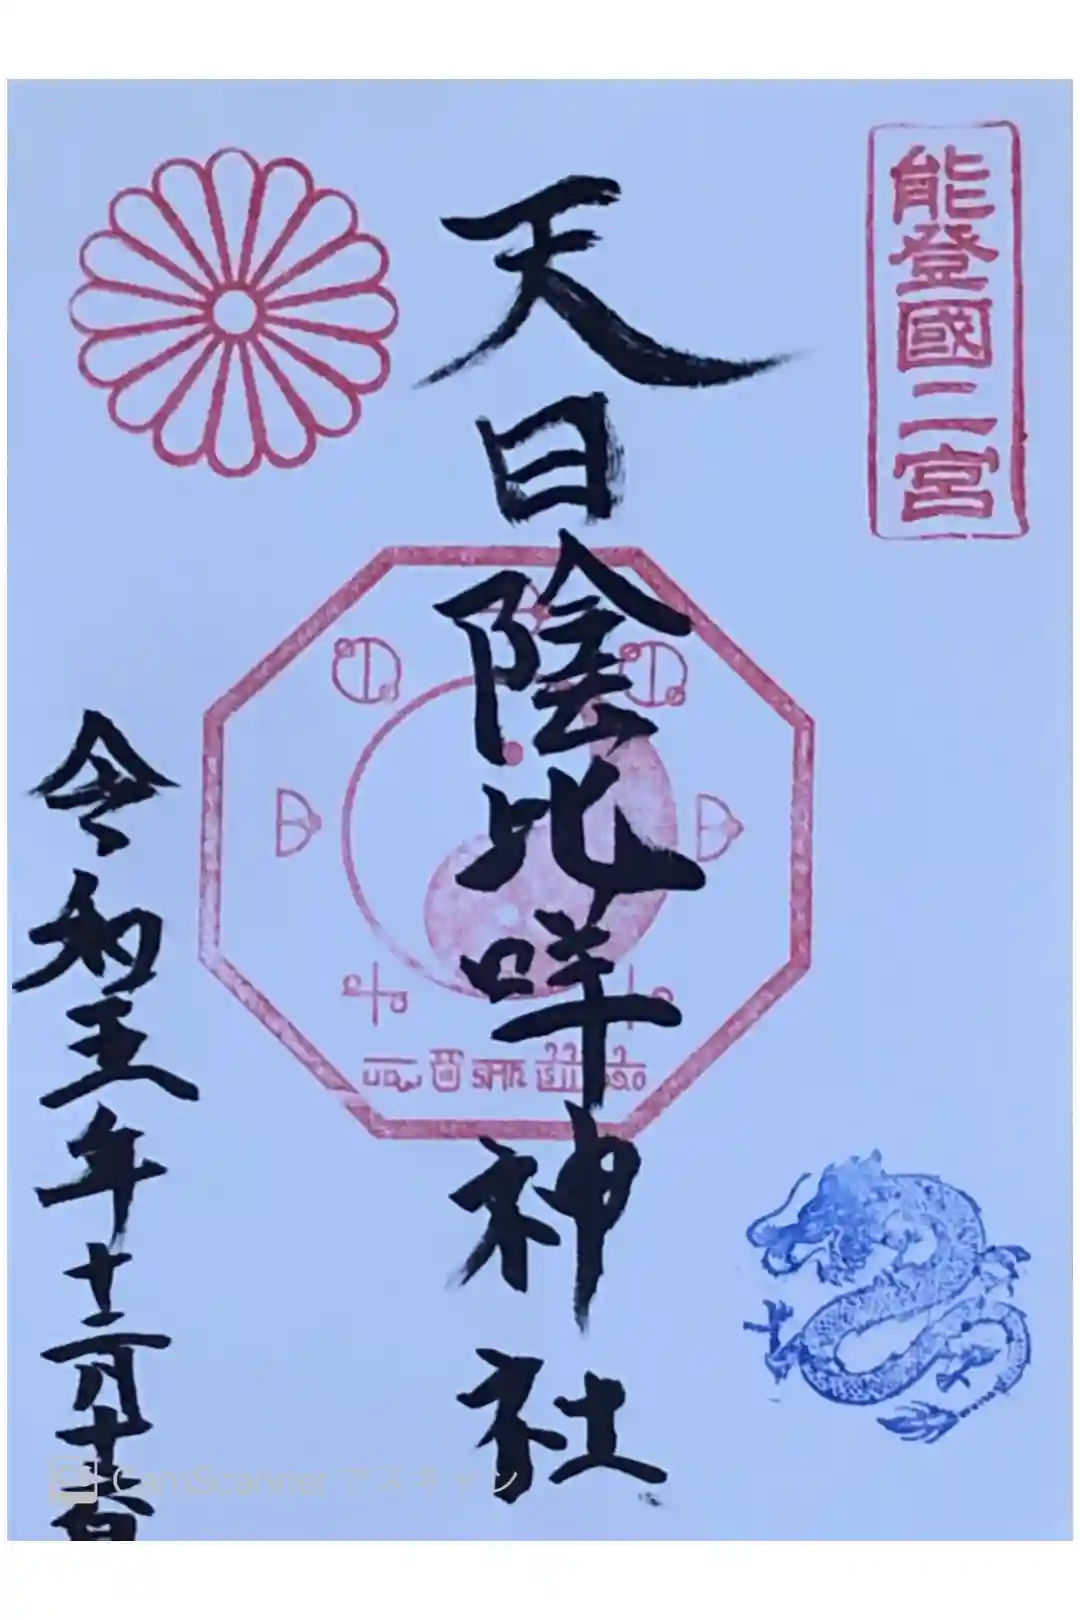 能登國二宮
天日陰比咩神社
令和五年十二月十五日
CamScannerでスキャン